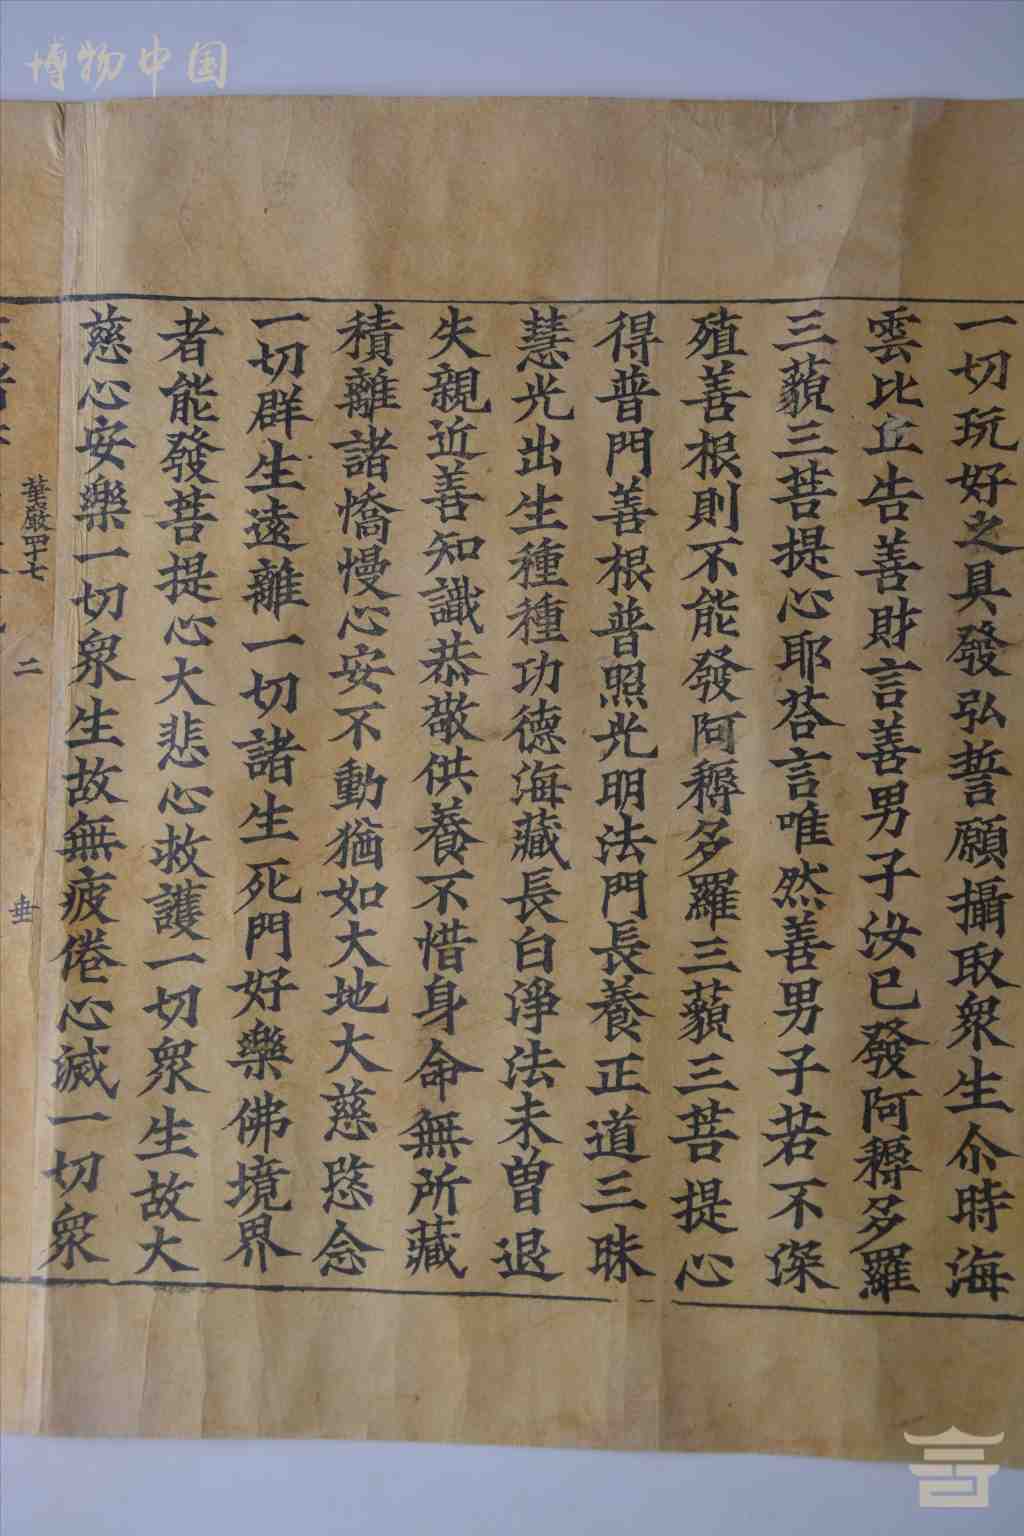 博物中国
一切玩好之具發弘誓願攝取衆生尒時海
雲比丘告善財言善男子汝已發阿耨多羅
三藐三菩提心耶荅言唯然善男子若不深
殖善根則不能發阿耨多羅三藐三菩提心
得普門善根普照光明法門長養正道三昧
慧光出生種種功德海藏長白淨法未曽退
失親近善知識恭敬供養不惜身命無所藏
積離諸憍慢心安不動猶如大地大慈愍念
一切群生遠離一切諸生死門好樂佛境界
者能發菩提心大悲心救護一切衆生故大
慈心安樂一切衆生故無疲倦心滅一切衆
華嚴四十七 二 垂